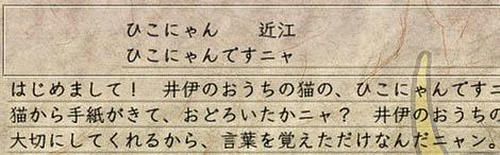 ひこにゃん　近江
ひこにゃんですニャ
はじめまして！　井伊のおうちの猫の、ひこにゃんですニ
猫から手紙がきて、おどろいたかニャ？　井伊のおうちの
大切にしてくれるから、言葉を覚えただけなんだニャン。